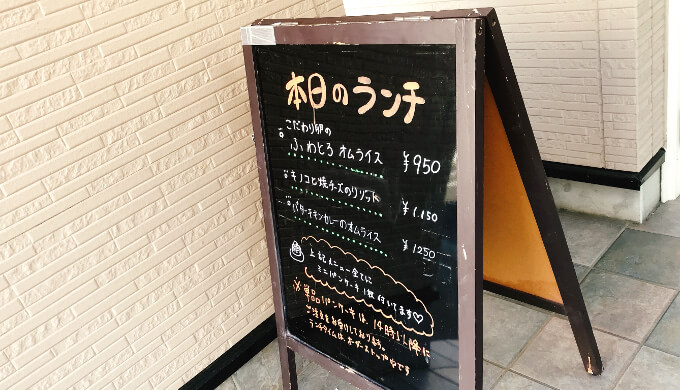 本日のランチ
こだわり卵の
ふわとろ オムライス ¥950
キノコと焼チーズのリゾット ¥1.150
バターチキンカレーのオムライス ¥1250
上記メニュー全てに
ミニパンケーキ1枚付いてます♡
※単品パンケーキは、14時以降に
ご注文をお伺りしております。
ランチタイムは、オーダーストップ中です